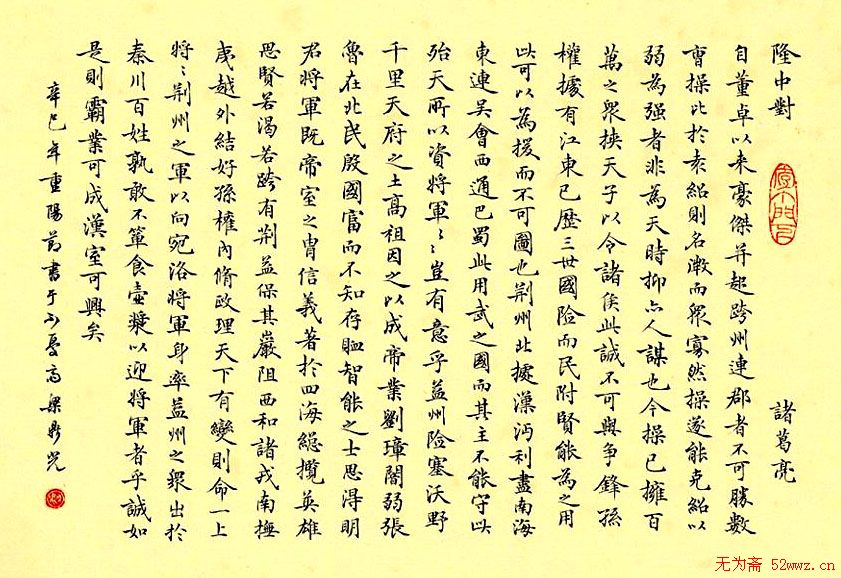 隆中對 諸葛亮
自董卓以来豪傑并起跨州連郡者不可勝數
曹操比於袁紹則名微而眾寡然操遂能克紹以
弱為强者非為天時抑亦人謀也今操已擁百
萬之眾挾天子以令諸侯此誠不可與争鋒孫
權據有江東已歷三世國險而民附賢能為之用
此可以為援而不可圖也荆州北據漢沔利盡南海
東連吴會西通巴蜀此用武之國而其主不能守此
殆天所以資將軍〻〻豈有意乎益州險塞沃野
千里天府之土高祖因之以成帝業劉璋闇弱張
魯在北民殷國富而不知存恤智能之士思得明
君將軍既帝室之胄信義著於四海總攬英雄
思賢若渴若跨有荆益保其巖阻西和諸戎南撫
夷越外結好孫權內脩政理天下有變則命一上
將〻荆州之軍以向宛洛將軍身率益州之眾出於
秦川百姓孰敢不簞食壺漿以迎將軍者乎誠如
是則霸業可成漢室可興矣
辛巳年重陽節書于不憂高梁
无为斋 52wwz.cn